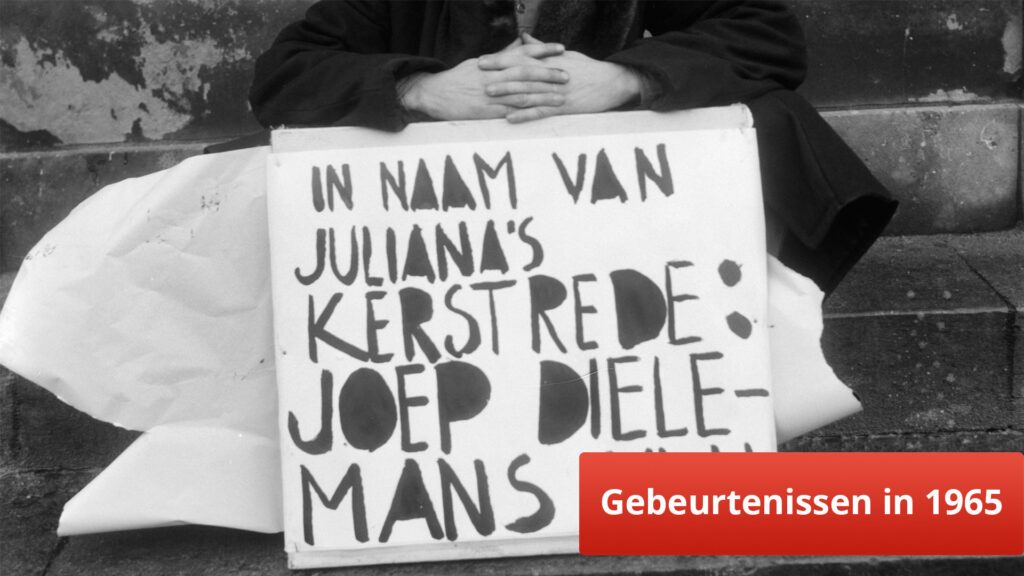 IN NAAM VAN
JULIANA'S
KERSTREDE:
JOEP DIELE-
MANS
Gebeurtenissen in 1965